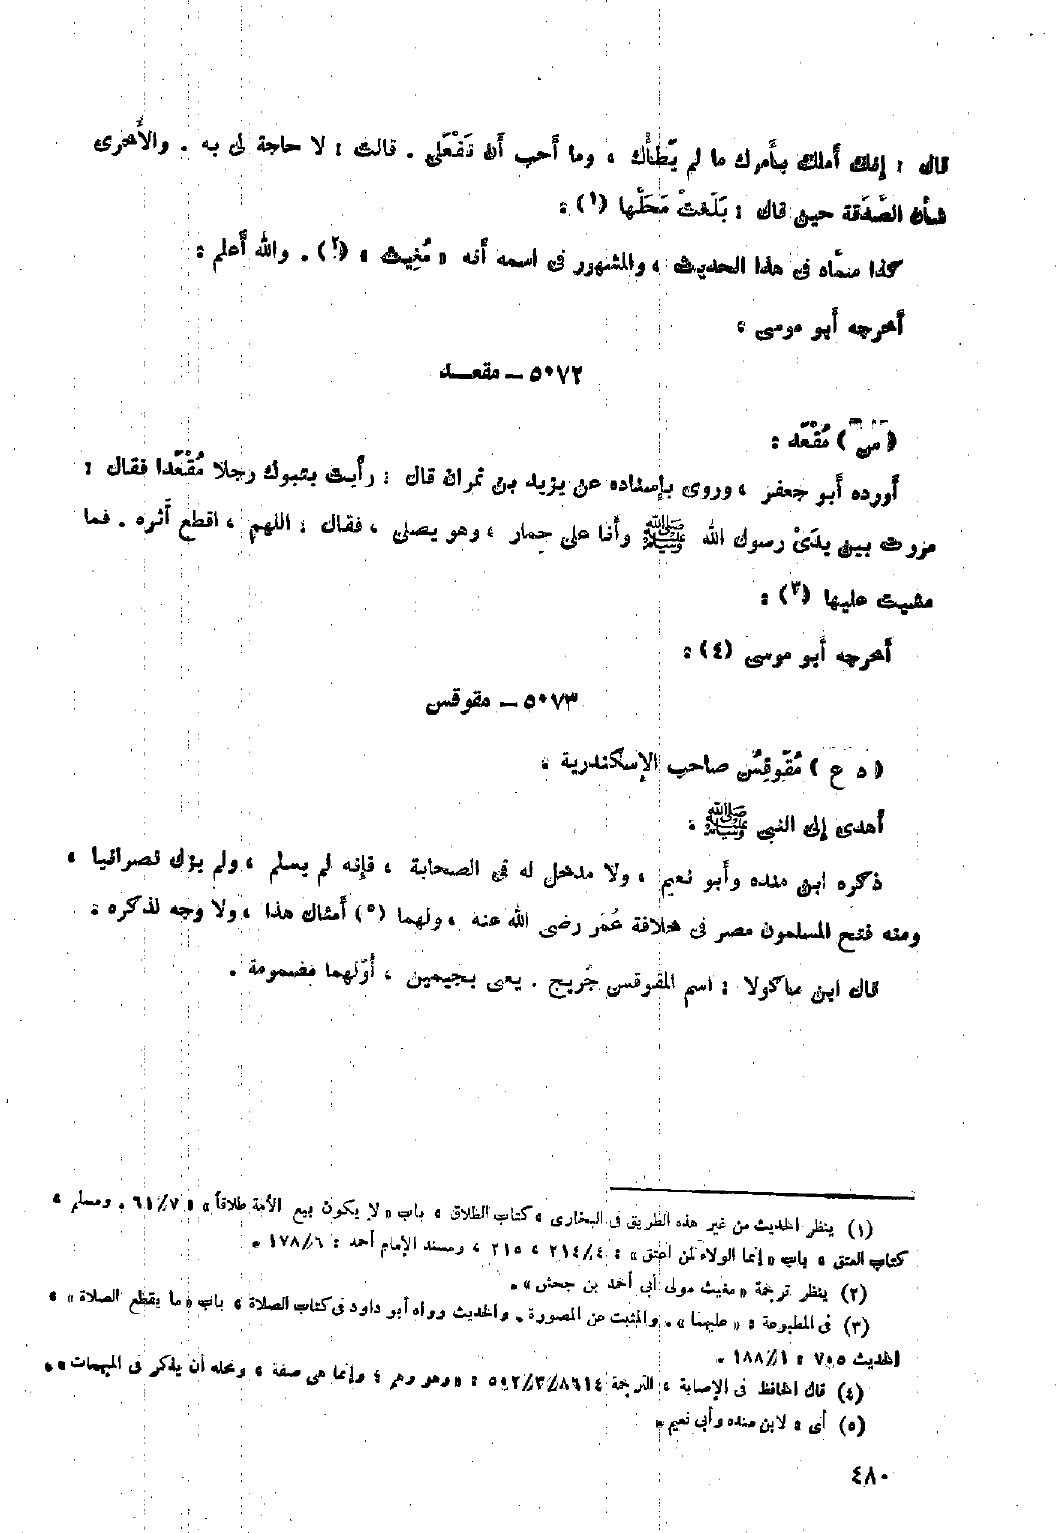 قال : إنك أملك بأمرك ما لم يَطأْك ، وما أُحب أَن تَفْعَلى . قالت : لا حاجة لى به . والأُخرى
شأن الصَّدَقة حين قال : بَلَغتْ مَحَلَّها (١) :
كذا سمّاه فى هذا الحديث ، والمشهور فى اسمه أنه « مُغِيث » (٢) . والله أعلم :
أخرجه أبو موسى :
٥٠٧٢ – مقعـــد
( س ) مُقْعَد :
أورده أبو جعفر ، وروى بإسناده عن يزيد بن نمران قال : رأَيت بتبوك رجلا مُقْعَدا فقال :
مررت بين يدَىْ رسول الله ﷺ وأنا على حمار ، وهو يصلى ، فقال : اللهم ، اقطع أَثره . فما
مشيت عليها (٣) :
أخرجه أبو موسى (٤) :
٥٠٧٣ – مقوقس
( د ع ) مُقَوقِسُ صاحب الإسكندرية :
أهدى إلى النبى ﷺ :
ذكره ابن منده وأبو نعيم ، ولا مدخل له فى الصحابة ، فإنه لم يسلم ، ولم يزل نصرانيا ،
ومنه فتح المسلمون مصر فى خلافة عُمَر رضى الله عنه ، ولهما (٥) أمثال هذا ، ولا وجه لذكره :
قال ابن ماكولا : اسم المقوقس جُريج . يعنى بجيمين ، أوّلهما مضمومة .
(١) ينظر الحديث من غير هذه الطريق فى البخارى « كتاب الطلاق » باب « لا يكون بيع الأمة طلاقاً » : ٦١/٧ . ومسلم ،
كتاب العتق ، باب « إنما الولاء لمن أعتق » : ٢١٤/٤ ، ٢١٥ ، ومسند الإمام أحمد : ١٧٨/٦ .
(٢) ينظر ترجمة « مغيث مولى أبى أحمد بن جحش » .
(٣) فى المطبوعة : « عليهما » . والمثبت عن المصورة . والحديث رواه أبو داود فى كتاب الصلاة ، باب « ما يقطع الصلاة » ،
الحديث ٧٠٥ : ١٨٨/١ .
(٤) قال الحافظ فى الإصابة ، الترجمة ٨٦١٤/٣/٥٠٢ : « وهو وهم ، وإنما هى صفة ، ومحله أن يذكر فى المبهمات » .
(٥) أى : لابن منده وأبى نعيم .
٤٨٠